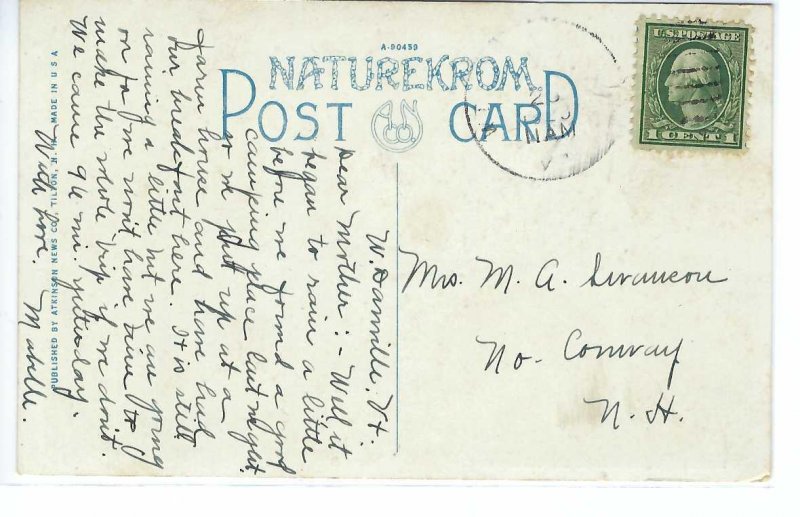 A-90459
NATUREKROM
POST CARD
U.S. POSTAGE
1 CENT 1
NAM
W. Danville, Vt.
Dear Mother:- Well it
began to rain a little
before we found a good
camping place last night
so we put up at a
farm house and have had
our breakfast here. It is still
raining a little but we are going
on for we won't have time to
make the whole trip if we don't.
We came 96 mi. yesterday.
With love. Mabelle.
Mrs. M. A. Swanson
No. Conway
N. H.
PUBLISHED BY ATKINSON NEWS CO., TILTON, N. H. MADE IN U S A